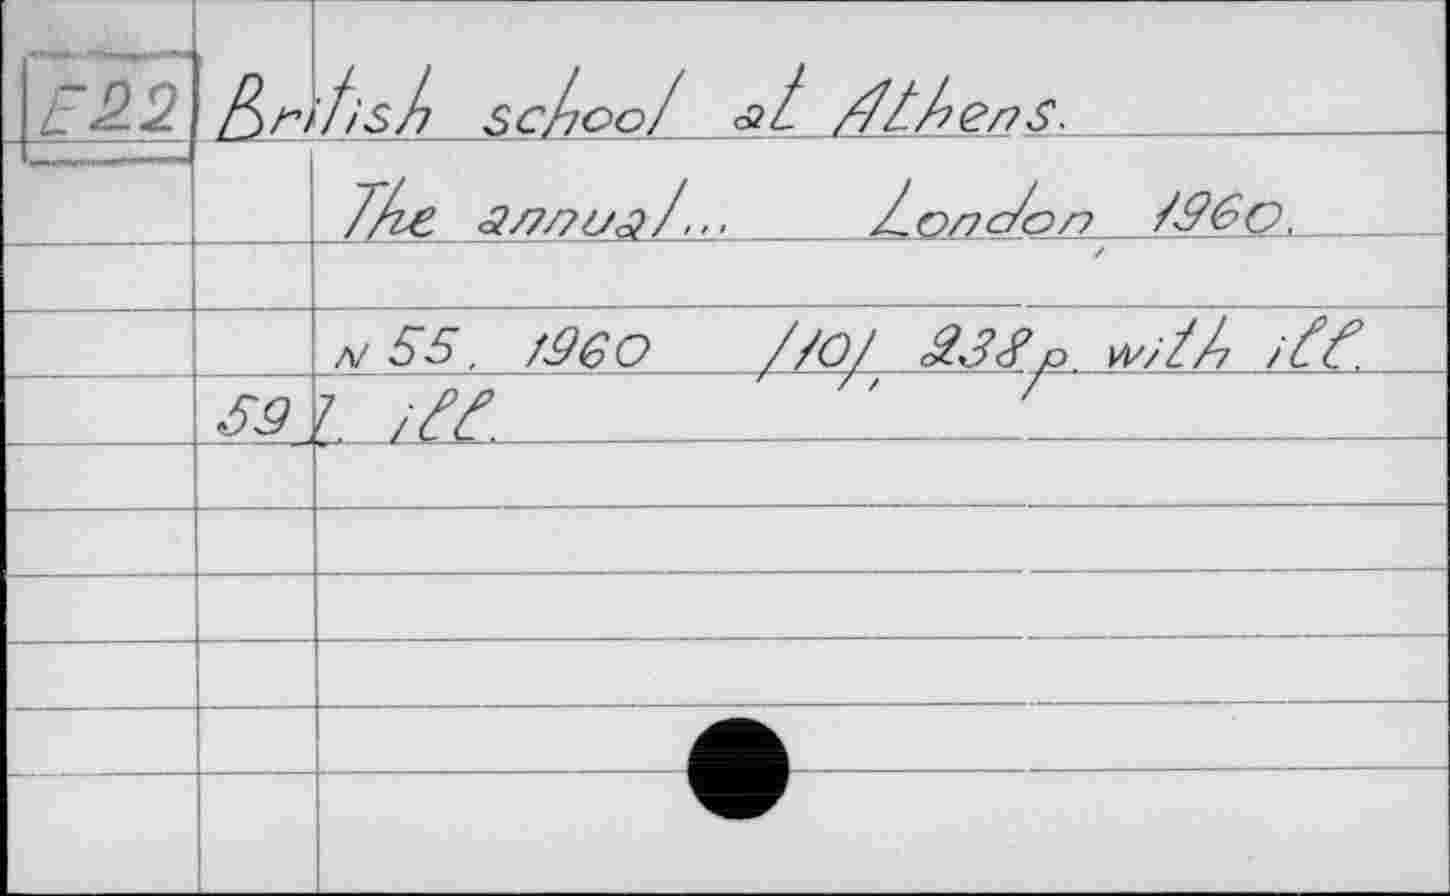 E22 British school at Athens.
The annual... London 1960.
N 55. 1960 /10/, 238p. with ill.
59 l. ill.